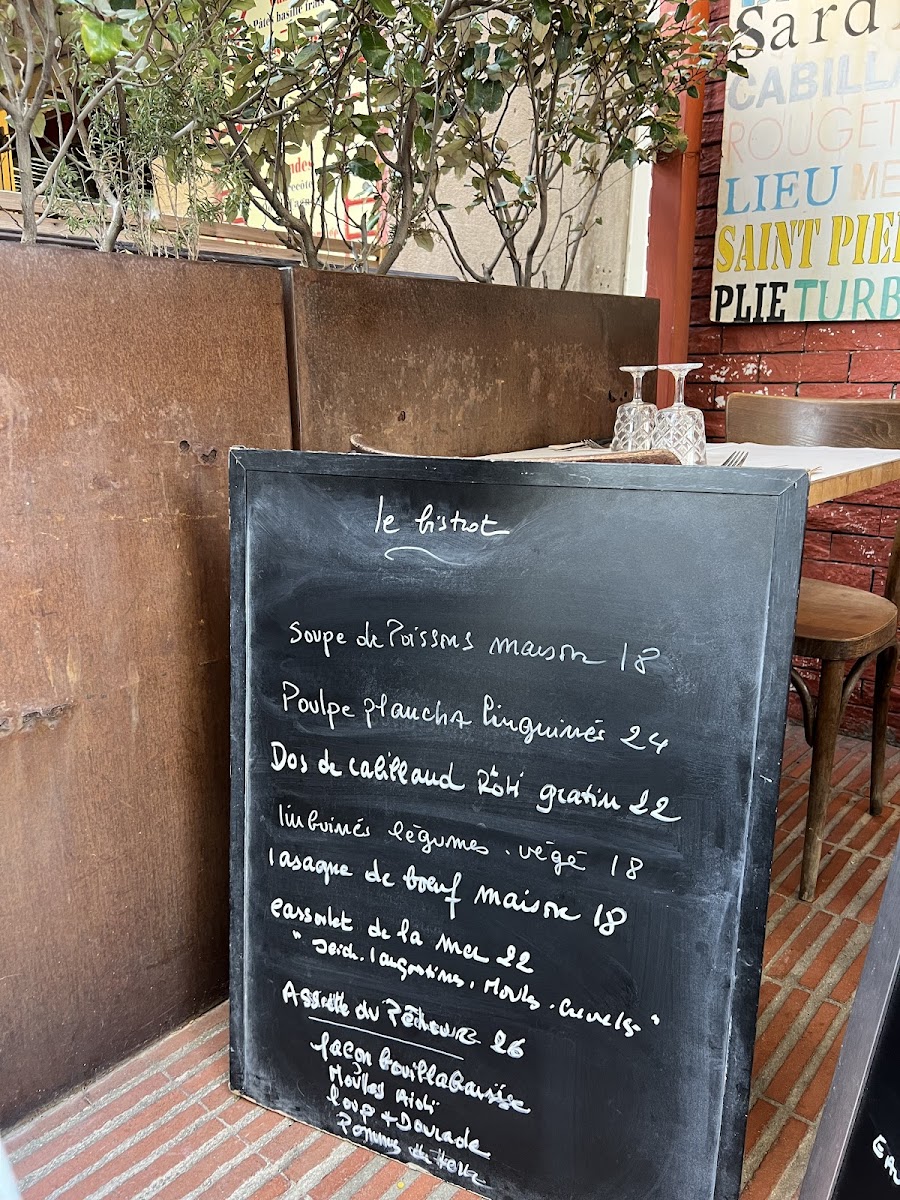 Pâtes basilic frais
Sard
CABILLA
ROUGET
LIEU ME
SAINT PIE
PLIE TURB
le bistrot
Soupe de Poissons maison 18
Poulpe plancha linguinés 24
Dos de cabillaud Rôti gratin 22
linguinés légumes . végé 18
lasagne de boeuf maison 18
cassoulet de la mer 22
" Seich. langostines, Moules . Crevettes "
Assiette du Pêcheur 26
façon bouillabaisse
Moules Aioli
loup + Daurade
Pommes de terre